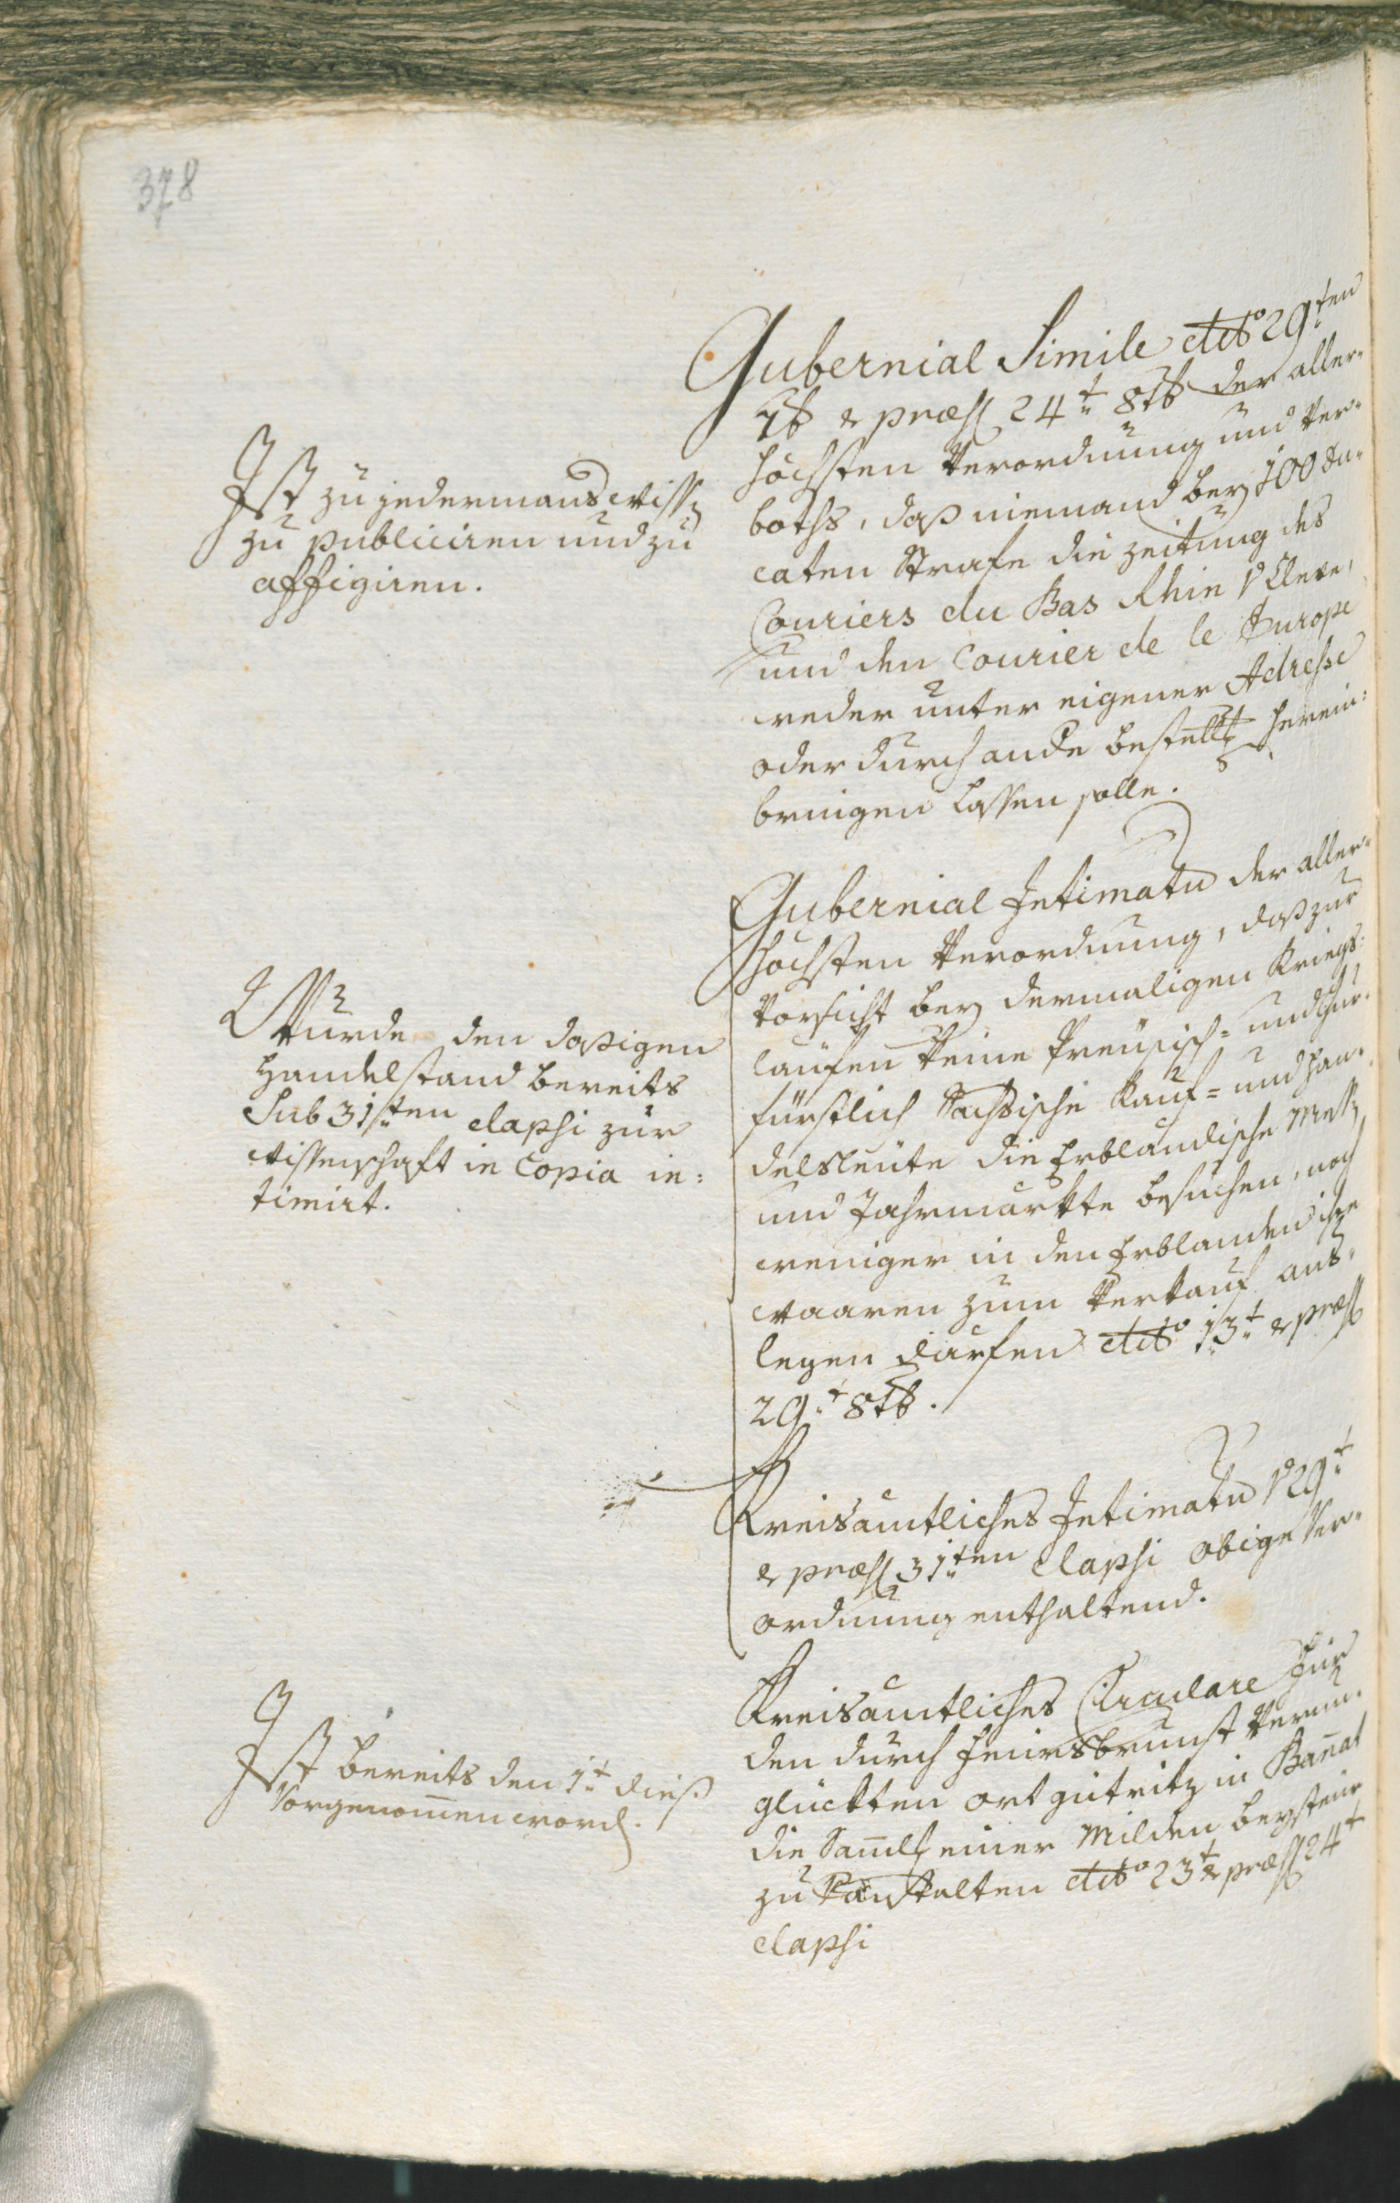 378
Gubernial Simile ddto 29ten
7b & præs 24t 8tb der aller-
höchsten Verordnung und Ver-
boths, daß niemand bey 100 Du-
caten Strafe die Zeitung des
Couriers du Bas Rhin v Cleve,
und den Courier de le Europe
weder unter eigener Adresse
oder durch andre bestellt herein-
bringen lassen solle.
Ist zu jedermans wiss
zu publiciren und zu
affigiren.
Gubernial Intimatu der aller-
höchsten Verordnung, daß zur
Vorsicht bey dermaligen Kriegs-
läufen keine Preusisch- und Chur-
fürstlich Sachsische Kauf- und Han-
delsleute die Erbländische Mess
und Jahrmärkte besuchen, noch
weniger in den Erblanden ihre
Waaren zum Verkauf aus-
legen dürfen ddto 13t & præs
29t 8tb.
Wurde den dasigen
Handelstand bereits
Sub 31ten elapsi zur
Wissenschaft in Copia in-
timirt.
Kreisämtliches Intimatu v 29t
& præs 31ten elapsi obige Ver-
ordnung enthaltend.
Kreisämtliches Circulare für
den durch Feuersbrunst verun-
glückten Ort gutritz in Banat
die Saml einer Milden beysteur
zu ddto 23t & præs 24t
elapsi
Ist bereits den 1t dieß
Vorgenomen word.